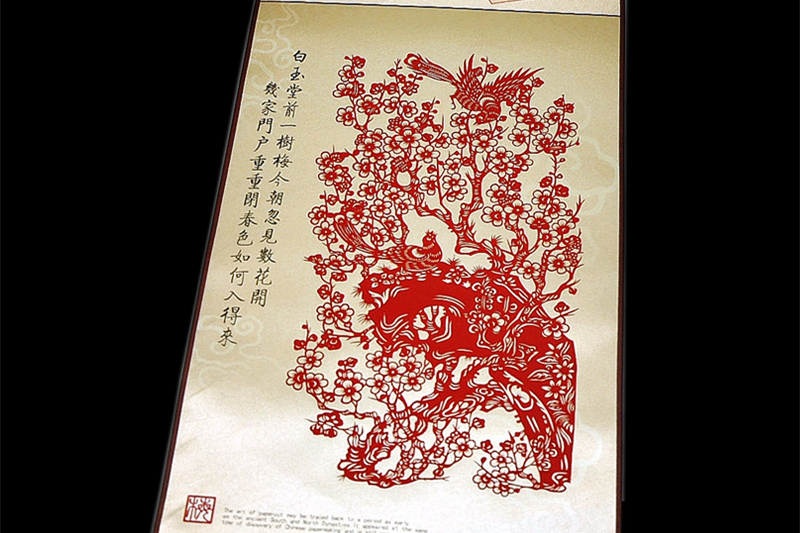 白玉堂前一樹梅今朝忽見數花開
幾家門户重重閉春色如何入得來
梅
The art of papercut may be traced back to a period as early
as the ancient South and North Dynasties It appeared at the same
time of discovery of Chinese papermaking and